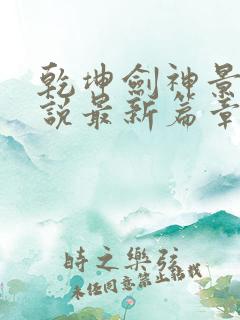 乾坤劍神景
說最新篇章
時之樂弦
未經同意禁止轉載